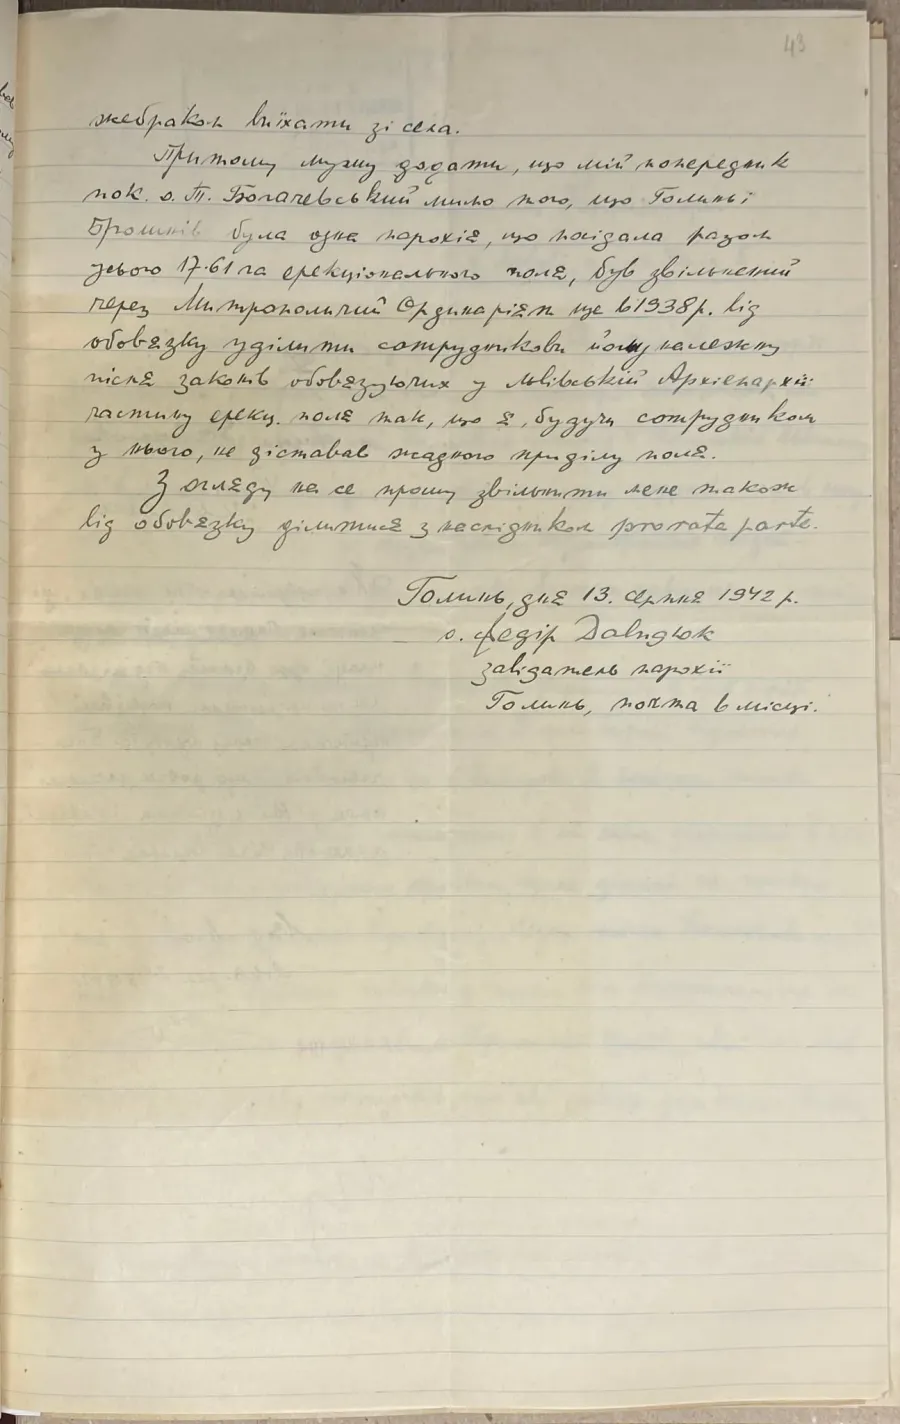 43
жебраком виїхати зі села.
Притому мушу додати, що мій попередник
пок. о. Т. Богачевський мимо того, що Голинь і
була одна парохія, що посідала разом
усього 17·61 га ерекціонального поля, був звільнений
через Митрополичий Ординаріят ще в 1938 р. від
обовязку уділити сотрудникови йому належну
після законів обовязуючих у львівській Архіепархії
частину ерекц. поля так, що я, будучи сотрудником
у нього, не діставав жадного приділу поля.
З огляду на се прошу звільнити мене також
від обовязку ділитися з наслідником pro rata parte.
Голинь, дня 13. серпня 1942 р.
о. Федір Давидюк
завідатель парохії
Голинь, почта в місці.